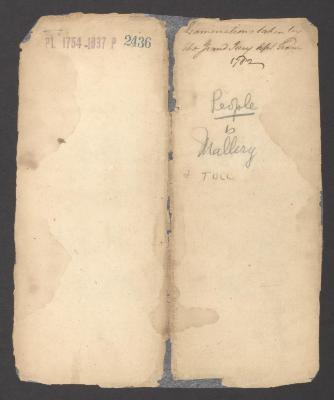 PL 1754-1837 P 2436
Examinations taken by
the Grand Jury Sept Term
1782
People
vs
Mallery
TULL